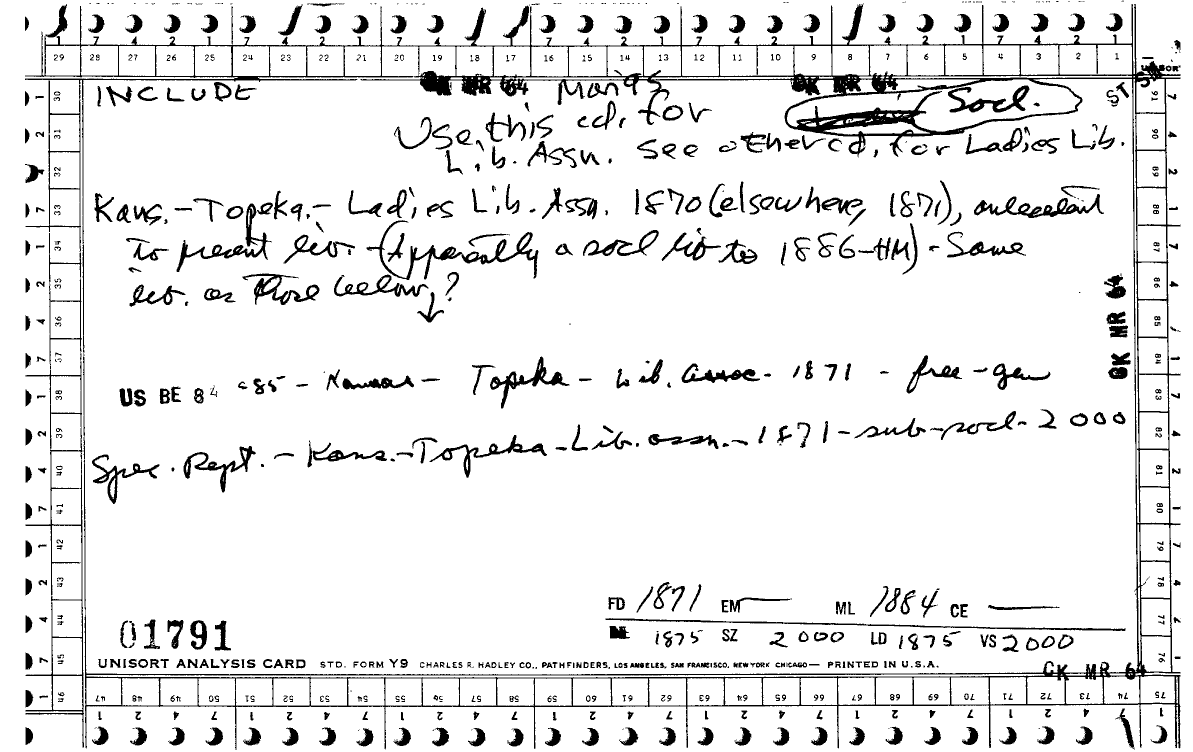 7 4 2 1 7 4 2 1 7 4 2 1 7 4 2 1 7 4 2 1 7 4 2 1 7 4 2 1
29 28 27 26 25 24 23 22 21 20 19 18 17 16 15 14 13 12 11 10 9 8 7 6 5 4 3 2 1
INCLUDE CK MR 64 Mar '95 CK MR 64
Use this cd. for Socl.
Lib. Assn. See other cd. for Ladies Lib.
Kans. - Topeka. - Ladies Lib. Assn. 1870 (elsewhere, 1871), antecedent
to present lib. - (Apparently a socl lib to 1886 - HM) - Same
lib. as those below?
CK MR 64
US BE 84 -85 - Kansas - Topeka - Lib. Assoc. 1871 - free - gen
Spec. Rept. - Kans. - Topeka - Lib. assn. - 1871 - sub - socl - 2000
FD 1871 EM — ML 1884 CE —
1875 SZ 2000 LD 1875 VS 2000
01791
UNISORT ANALYSIS CARD STD. FORM Y9 CHARLES R. HADLEY CO., PATHFINDERS, LOS ANGELES, SAN FRANCISCO, NEW YORK CHICAGO — PRINTED IN U.S.A.
CK MR 64
47 48 49 50 51 52 53 54 55 56 57 58 59 60 61 62 63 64 65 66 67 68 69 70 71 72 73 74 75